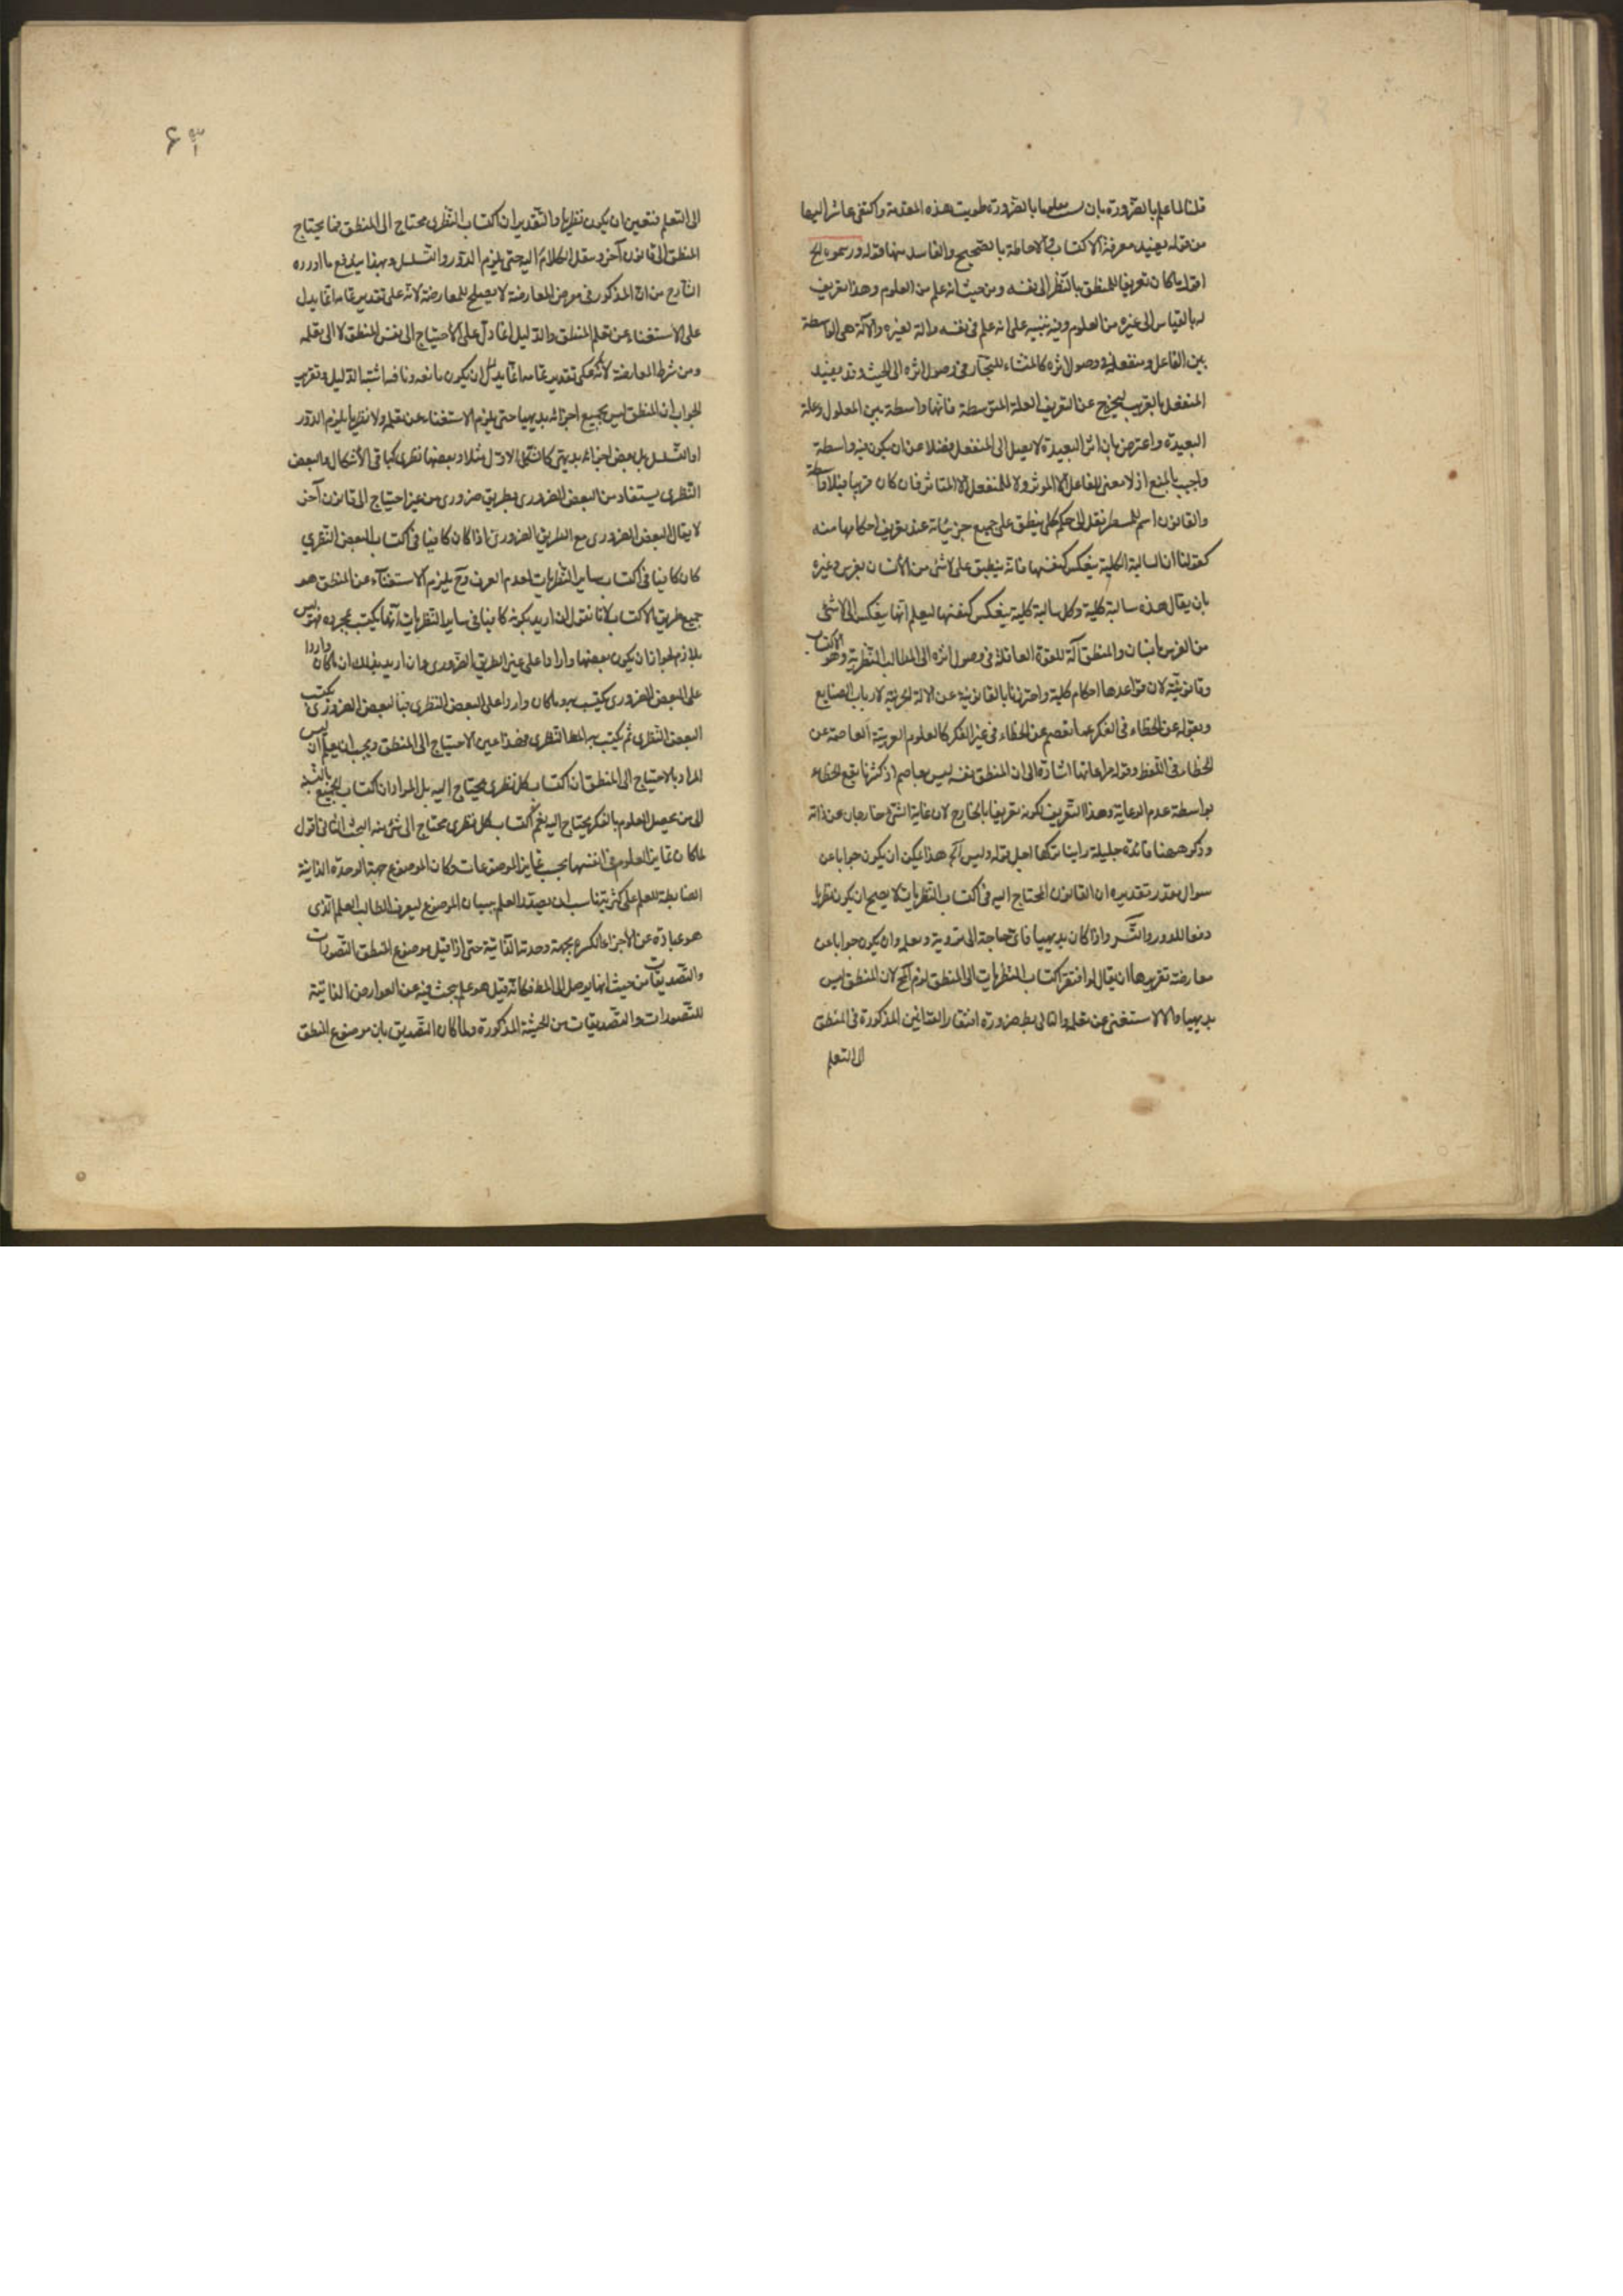 قلنا لما علم بالضرورة بان معلوما بالضرورة طويت هذه المقدمة واكتفى بما شر اليها
من قوله يفيد معرفة الاكتساب والاحاطة بالصحيح والفاسد منها قوله ورسموه الخ
اقول لما كان تعريفا للمنطق بالنظر الى نفسه ومن حيث انه علم من العلوم وهذا تعريف
له بالقياس الى غيره من العلوم وفيه تنبيه على انه علم فى نفسه والة لغيره والآلة هى الواسطة
بين الفاعل ومنفعله فى وصول اثره كالمنشار للنجار فى وصول اثره الى الخشب وقد يفيد
المنفعل بالقريب ليخرج عن التعريف العلة المتوسطة فانها واسطة بين المعلول وعلته
البعيدة واعترض بان اثر البعيدة لا يصل الى المنفعل فضلا عن ان يكون فيه واسطة
واجيب بالمنع اذ لا معنى للفاعل الا الموثر ولا للمنفعل الا المتاثر فان كان قريبا فبلا واسطة
والقانون اسم للمسطر نقل الى حكم كلى ينطبق على جميع جزئياته عند تعريف احكامها منه
كقولنا ان السالبة الكلية ينعكس كنفسها فانه ينطبق على لا شئ من الانسان بفرس وغيره
بان يقال هذه سالبة كلية وكل سالبة كلية ينعكس كنفسها ليعلم انها ينعكس الى لا شئ
من الفرس بانسان والمنطق آلة للقوة العاقلة فى وصول اثره الى المطالب النظرية وهو الاكتساب
وقانونية لان قواعدها احكام كلية واحترزنا بالقانونية عن الالة الجزئية لارباب الصنايع
وبقوله عن الخطاء فى الفكر عما تعصم عن الخطاء فى غير الفكر كالعلوم العربية العاصمة عن
الخطاء فى اللفظ وقوله مراعاتها اشارة الى ان المنطق نفسه ليس بعاصم اذ كثيرا ما يقع الخطاء
بواسطة عدم الرعاية وهذا التعريف لكونه تعريفا بالخارج لان غاية الشئ خارجة عن ذاته
وذكر ههنا فائدة جليلة راينا تركها اجل قوله وليس الخ هذا يمكن ان يكون جوابا عن
سوال مقدر تقديره ان القانون المحتاج اليه فى اكتساب النظريات لا يصح ان يكون نظريا
دفعا للدور والتسلسل واذا كان بديهيا فاى حاجة الى تدوينه وتعلمه وان يكون جوابا عن
معارضة تقريرها ان يقال لو افتقر اكتساب النظريات الى المنطق لزم المح لان المنطق ليس
بديهيا والا لاستغنى عن تعلمه والتالى بط ضرورة افتقار القوانين المذكورة فى المنطق
الى التعلم
الى التعلم فتعين ان يكون نظريا والتقدير ان اكتساب النظرى محتاج الى المنطق فما يحتاج
المنطق الى قانون آخر وينقل الكلام اليه حتى يلزم الدور والتسلسل وبهذا يندفع ما اورده
الشارح من ان المذكور فى معرض المعارضة لا يصلح للمعارضة لانه على تقدير تمامه انما يدل
على الاستغناء عن تعلم المنطق والدليل انما دل على الاحتياج الى نفس المنطق لا الى تعلمه
ومن شرط المعارضة لانه على تقدير تمامه انما يدل ان يكون مانعه ونافيه اثبته الدليل وتقرير
الجواب ان المنطق ليس بجميع اجزائه بديهيا حتى يلزم الاستغناء عن تعلمه ولا نظريا يلزم الدور
او التسلسل بل بعض اجزائه بديهى كالشكل الاول مثلا وبعضها نظرى كباقى الاشكال والبعض
النظرى يستفاد من البعض الضرورى بطريق ضرورى من غير احتياج الى قانون آخر
لا يقال البعض الضرورى مع الطريق الضرورى اذا كان كافيا فى اكتساب البعض النظرى
كان كافيا فى اكتساب ساير النظريات لعدم الفرق وح يلزم الاستغناء عن المنطق هو
جميع طريق الاكتساب لانا نقول ان اريد بكونه كافيا فى ساير النظريات انها يكتسب بمجرده فهو ليس
بلازم لجواز ان يكون بعضها واردا على غير الطريق الضرورى وان اريد بذلك ان ما كان واردا
على البعض الضرورى يكتسب به وما كان واردا على البعض النظرى فبالبعض الضرورى يكتسب
البعض النظرى ثم يكتسب به النظرى فهذا عين الاحتياج الى المنطق ويجب ان يعلم ان ليس
المراد بالاحتياج الى المنطق ان اكتساب كل نظرى محتاج اليه بل المراد ان اكتساب الجميع بالنسبة
الى من يحصل العلوم بالفكر يحتاج اليه نعم اكتساب كل نظرى محتاج الى شئ منه البحث الثانى اقول
لما كان تمايز العلوم فى انفسها بحسب تمايز الموضوعات وكان الموضوع جهة الوحدة الذاتية
الضابطة للعلم على كثرته ناسب ان يصدر العلم ببيان الموضوع ليعرف الطالب العلم الذى
هو عبارة عن الاجزاء الكثيرة بجهة وحدته الذاتية حتى اذا قيل موضوع المنطق التصورات
والتصديقات من حيث انها يوصل الى المط فكانه قيل هو علم يبحث فيه عن العوارض الذاتية
للتصورات والتصديقات من الحيثية المذكورة ولما كان التصديق بان موضوع المنطق